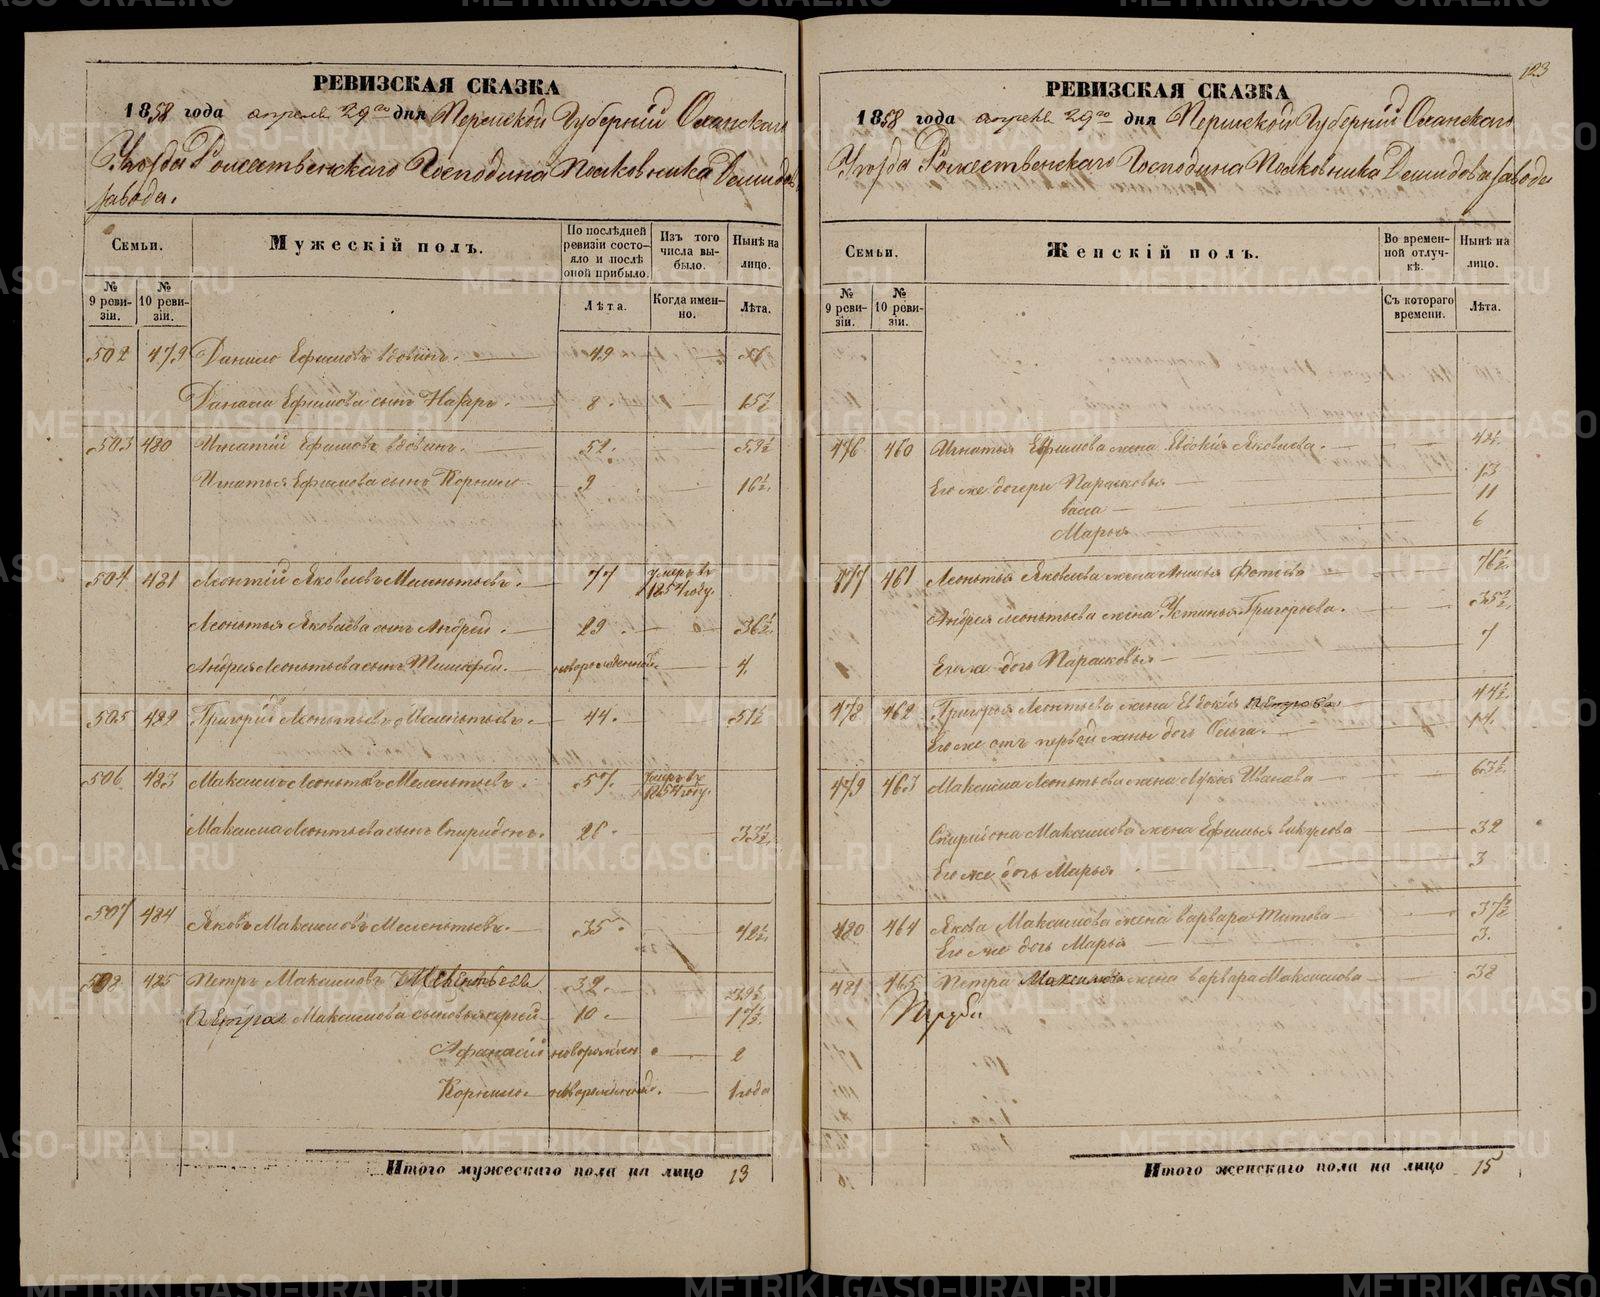 РЕВИЗСКАЯ СКАЗКА
1858 года апреля 29го дня Пермской Губерніи Оханскаго
Уѣзда Рожественскаго Господина Полковника Демидова
завода.
Семьи.
Мужескій полъ.
По послѣдней ревизіи состояло и послѣ оной прибыло.
Изъ того числа выбыло.
Нынѣ на лицо.
№ 9 ревизіи.
№ 10 ревизіи.
Лѣта.
Когда именно.
Лѣта.
502 479 Данило Ефимовъ Вдовинъ. 49
Данила Ефимова сынъ Назаръ. 8. 15½
503 480 Игнатій Ефимовъ Вдовинъ. 52. 59½
Игнатья Ефимова сынъ Корнило 9 16½
504 481 Леонтій Яковлевъ Мелентьевъ. 77 умеръ въ 1854 году.
Леонтья Яковлева сынъ Андрей. 29. 36½
Андрея Леонтьева сынъ Тимофей. новорожденный 4.
505 482 Григорій Леонтьевъ Мелентьевъ. 44. 51½
506 483 Максимъ Леонтьевъ Мелентьевъ. 57. умеръ въ 1854 году.
Максима Леонтьева сынъ Спиридонъ. 26. 33½
507 484 Яковъ Максимовъ Мелентьевъ. 35. 42½
508 485 Петръ Максимовъ Мелентьевъ 32. 39½
Петра Максимова сыновья Сергей 10. 17½
Афанасій новорожден 2
Корнило новорожденный. 1 года
Итого мужескаго пола на лицо 13
123
РЕВИЗСКАЯ СКАЗКА
1858 года апреля 29го дня Пермской Губерніи Оханскаго
Уѣзда Рожественскаго Господина Полковника Демидова завода
Семьи.
Женскій полъ.
Во временной отлучкѣ.
Нынѣ на лицо.
№ 9 ревизіи.
№ 10 ревизіи.
Съ котораго времени.
Лѣта.
476 460 Игнатья Ефимова жена Евдокія Яковлева.
Его же дочери Парасковья 13
Васса 11
Марья 6
477 461 Леонтья Яковлева жена Анисья Фотеева 76½
Андрея Леонтьева жена Устинья Григорьева. 35½
Его же дочь Парасковья 7
478 462 Григорья Леонтьева жена Евдокія Петрова 44½
Его же отъ первой жены дочь Ольга. 14.
479 463 Максима Леонтьева жена Лукья Иванова 63½
Спиридона Максимова жена Ефимья Викулова 32
Его же дочь Марья 3
480 464 Якова Максимова жена Варвара Титова 37½
Его же дочь Марья 3.
481 465 Петра Максимова жена Варвара Максимова 38
Итого женскаго пола на лицо 15
METRIKI.GASO-URAL.RU